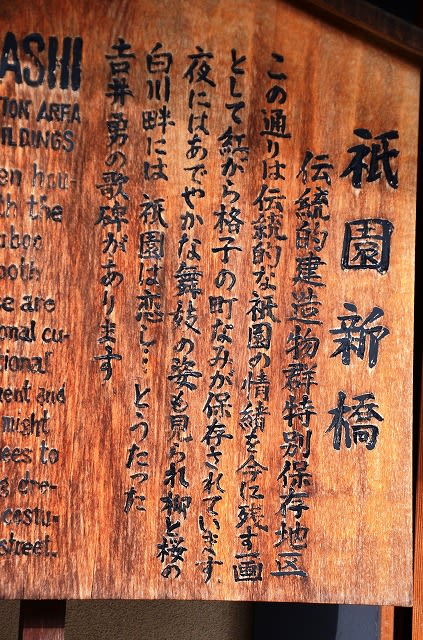 祇園新橋
伝統的建造物群特別保存地区
この通りは伝統的な祇園の情緒を今に残す一画
として紅がら格子の町なみが保存されています
夜にはあでやかな舞妓の姿も見られ柳と桜の
白川畔には 祇園は恋し… とうたった
吉井勇の歌碑があります
ASHI
TION AREA
ILDINGS
en hou-
h the
boo
ooth
se are
onal cu-
sional
ment and
might
ees to
g dre-
costu-
street.